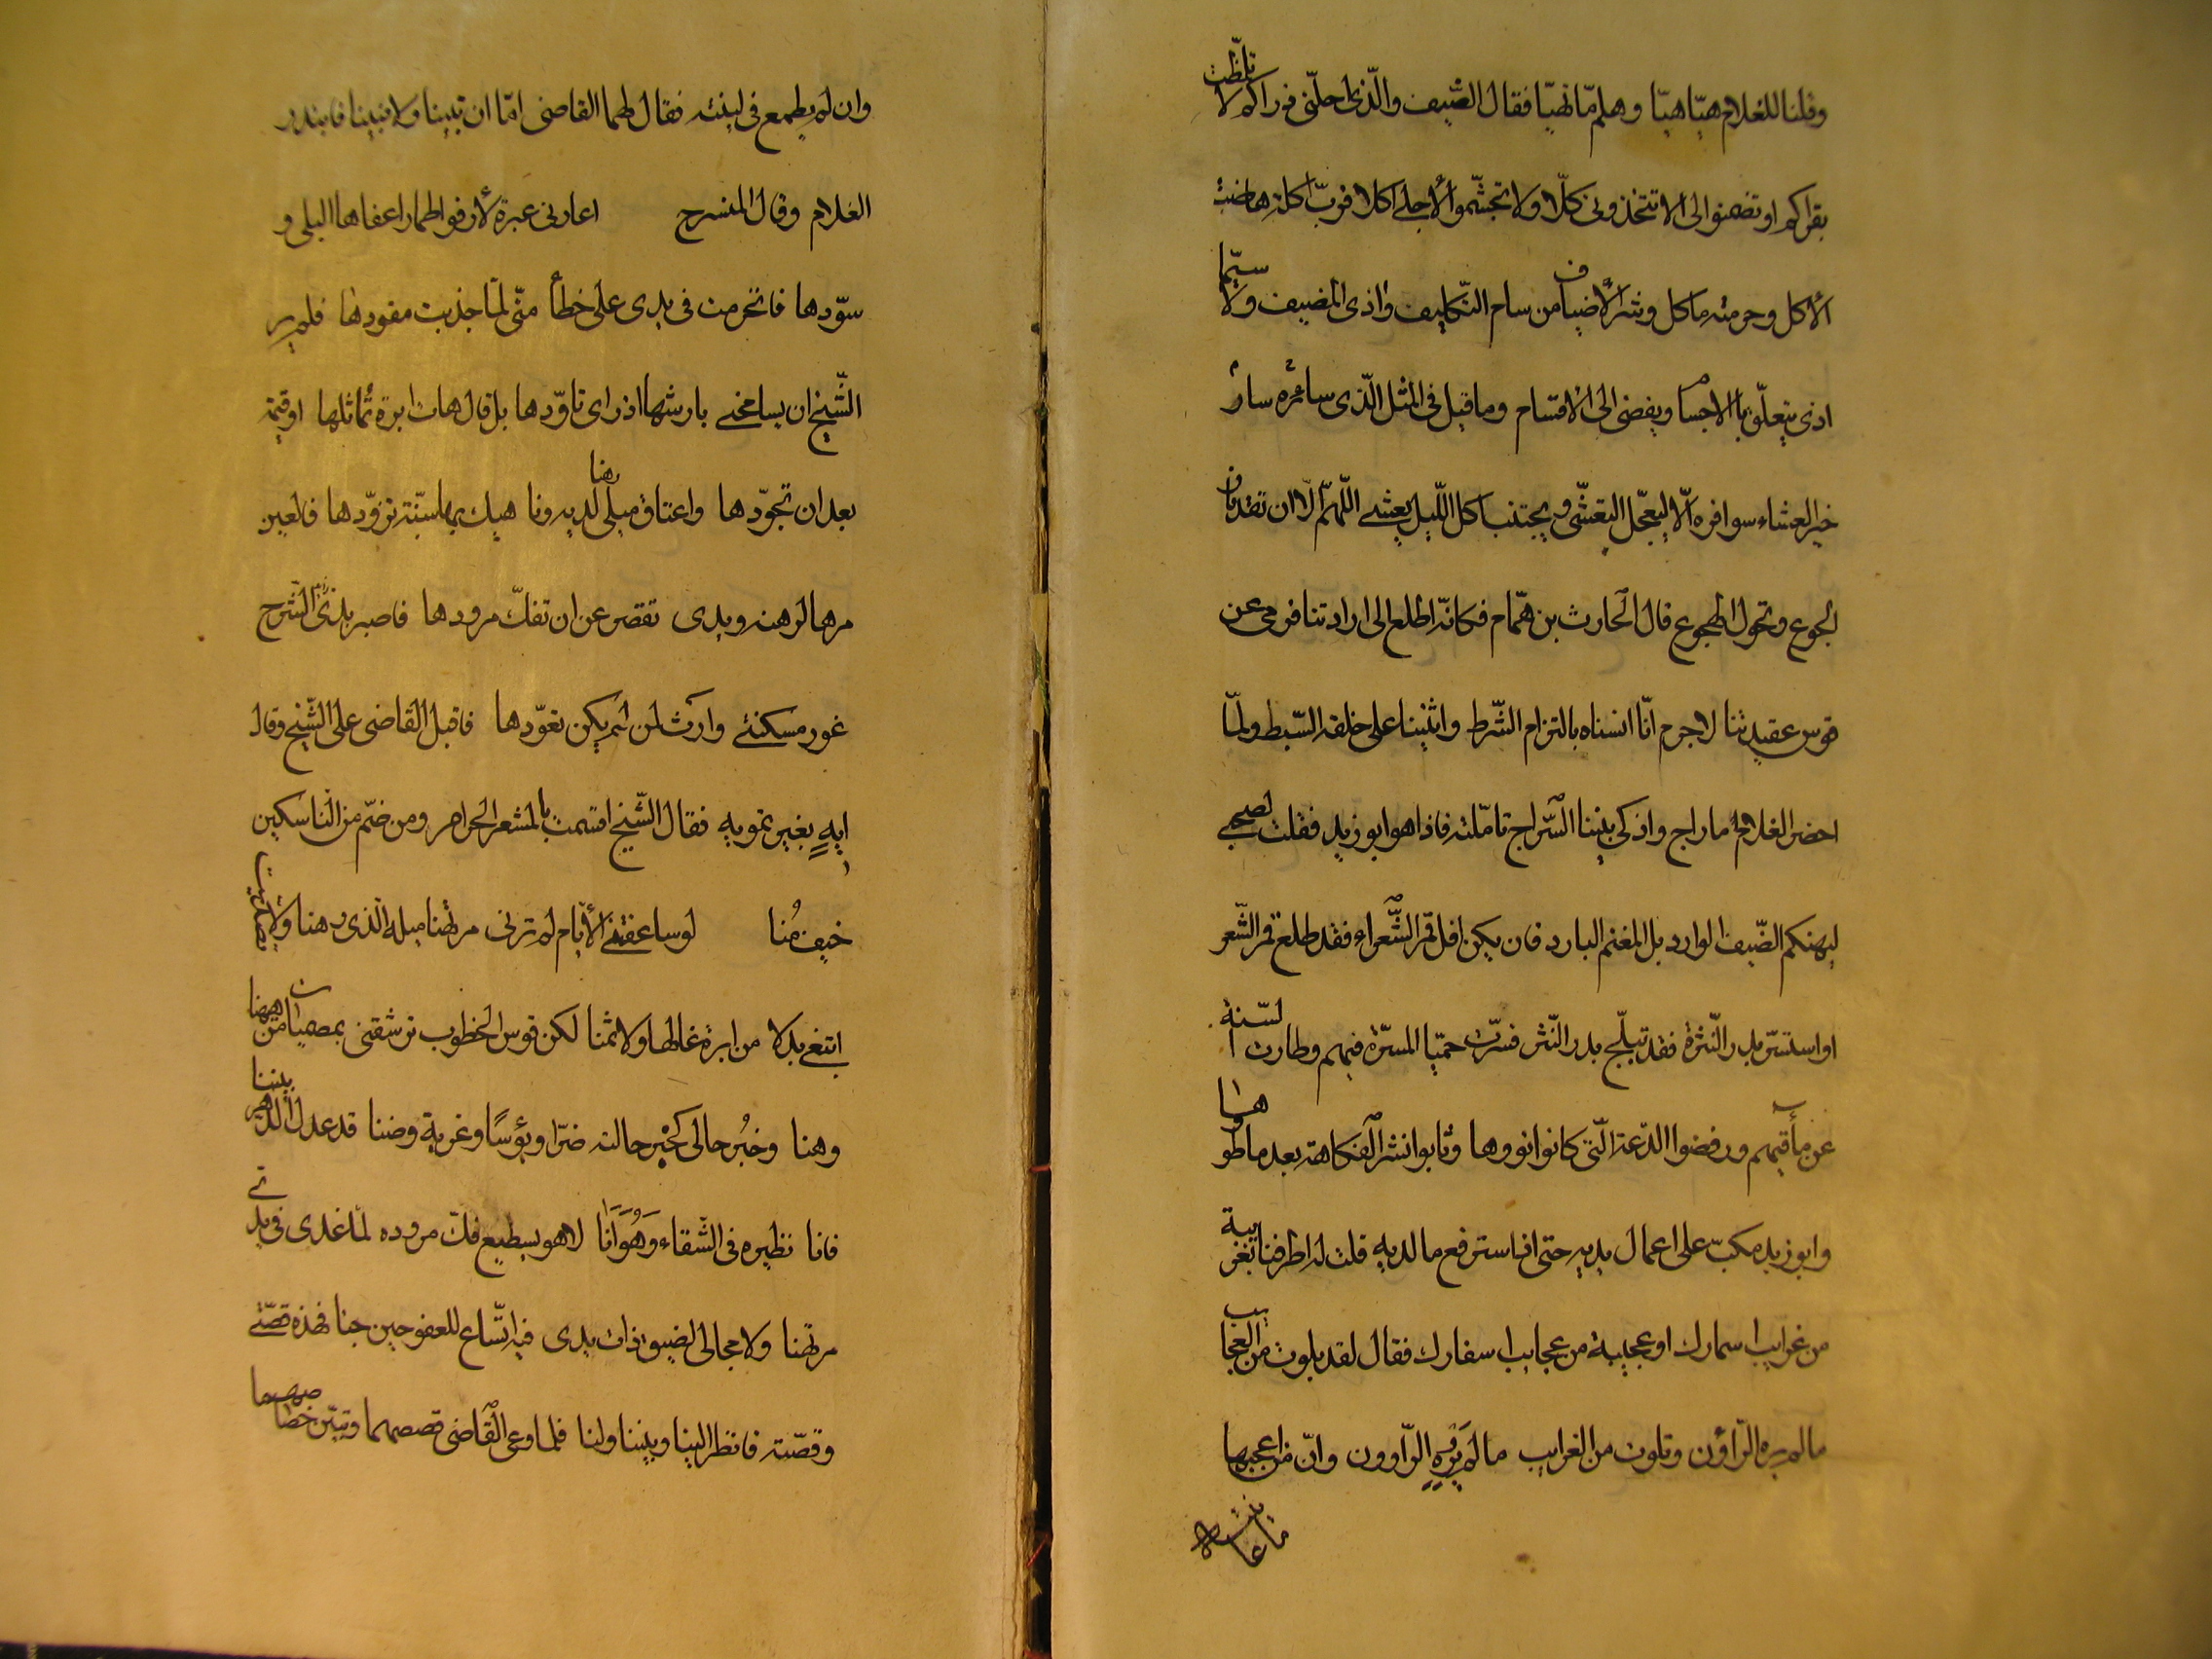 وقلنا للغلام هيّا هيّا وهلم ما تهيّا فقال الضّيف والّذى احلّنى ذراكم لا تلمّظت
بقراكم او تضمنوا لى الا تتخذونى كلّا ولا تجشّموا لاجلى اكلا فربّ اكلة هاضت
الاكل وحرمته مآكل وشرّ الاضياف من سام التّكليف واذى المضيف ولا سيّما
اذى يتعلّق بالاجسام ويفضى الى الاقسام وما قيل فى المثل الّذى سار سائره
خير العشاء سوافره الّا ليعجّل التعشّى ويجتنب اكل اللّيل يعشى اللّهمّ الّا ان تقد نار
الجوع وتحول الهجوع قال الحارث بن همّام فكانّه اطلع الى ارادتنا فرمى عن
قوس عقيدتنا لا جرم انّا انسناه بالتزام الشّرط واثنينا على خلقه السّبط ولمّا
احضر الغلام ما راج واذكى بيننا السّراج تامّلته فاذا هو ابو زيد فقلت لصحبى
ليهنكم الضّيف الوارد بل المغنم البارد فان يكن افل قمر الشّعراء فقد طلع قمر الشّعر
او استسرّ بدر النّثرة فقد تبلّج بدر النّثر فسرت حميّا المسرّة فيهم وطارت السّنة
عن مأقيهم ورفضوا الدّعة الّتى كانوا نووها وثابوا نشر الفكاهة بعد ما طووها
وابو زيد مكبّ على اعمال يديه حتى اذا استرفع ما لديه قلت له اطرفنا بغريبة
من غرايب اسمارك او عجيبة من عجايب اسفارك فقال لقد بلوت من العجايب
ما لم يره الرّاؤن وتلوت من الغرايب ما لم يروه الرّاوون وانّ من اعجبها
ما عاينته
وان لم يطمع فى لينته فقال لهما القاضى امّا ان تبينا ولا فبينا فابتدر
الغلام وقال المنسرح اعارنى عبرة لارفو اطمارا عفاها البلى و
سوّدها فانخرمت فى يدى على خطأ منّى لمّا جذبت مقودها فلم ير
الشّيخ ان يسامحنى بارشها اذ راى تاوّدها بل قال هات ابرة تماثلها او قيمة
بعد ان تجوّدها واعتاق ميلى رهنا لديه ونا هيك بها سبّة تزوّدها فالعين
مرهالرهنه ويدى تقصر عن ان تفكّ مرودها فاصبر بذى الشرح
غور مسكنتى وارث لمن لم يكن تعوّدها فاقبل القاضى على الشّيخ وقال
ايه بغير تمويه فقال الشّيخ اقسمت بالمشعر الحرام ومن ضمّ من النّاسكين
خيف منا لو ساعفتنى الايّام لم ترنى مرتهنا ميله الّذى رهنا ولا تصدّيت
ابتغى بدلا من ابرة غالها ولا ثمنا لكن قوس الخطوب ترشقنى بمصميات من ههنا
وهنا وخبر حالى كخبر حالته ضرّا وبؤسا وغربة وضنا قد عدل الدّهر بيننا
فانا نظيره فى الشّقاء وهو انا لا هو يسطيع فكّ مروده لمّا غدى فى يدى
مرتهنا ولا مجالى لضيق ذات يدى فيه اتّساع للعفو حين جنا فهذه قصّتى
وقصّته فانظر الينا وبيننا ولنا فلما وعى القاضى قصصهما وتبيّن خصاصتهما